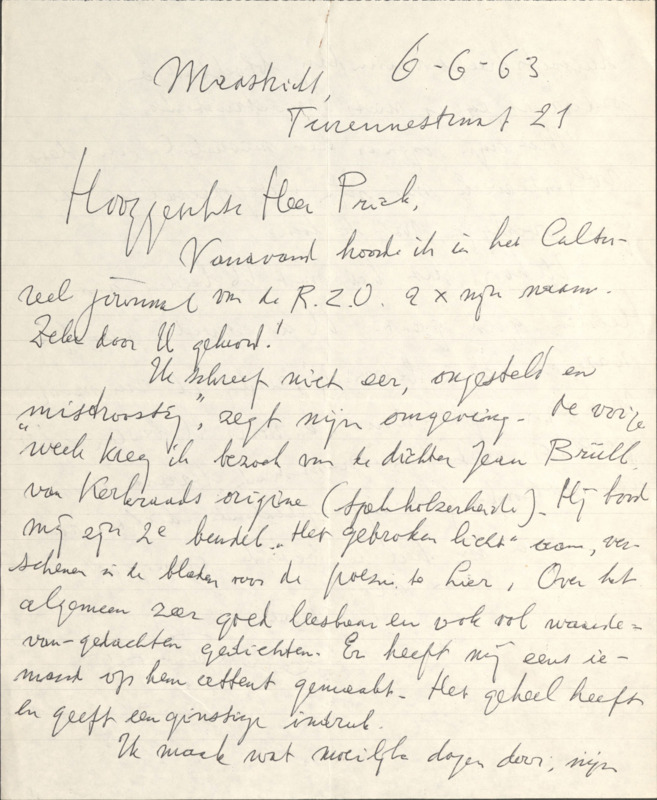 Maastricht, 6-6-63
Turennestraat 21
Hooggeachte Heer Prick,
Vanavond hoorde ik in het Cultu-
reel journaal van de R.Z.O. 2 x mijn naam.
Zeker door U gehoord!
Ik schreef niet eer, ongesteld en
"mistroostig", zegt mijn omgeving. De vorige
week kreeg ik bezoek van de dichter Jean Brüll
van Kerkraads origine (Spekholzerheide). Hij bood
mij zijn 2e bundel "Het gebroken licht" aan, ver-
schenen in de bladen voor de poëzie te Lier, Over het
algemeen zeer goed leesbaar en ook vol waarde-
van-gedachten gedichten. Er heeft mij eens ie-
mand op hem attent gemaakt. Het geheel heeft
en geeft een gunstige indruk.
Ik maak wat moeilijke dagen door, mijn